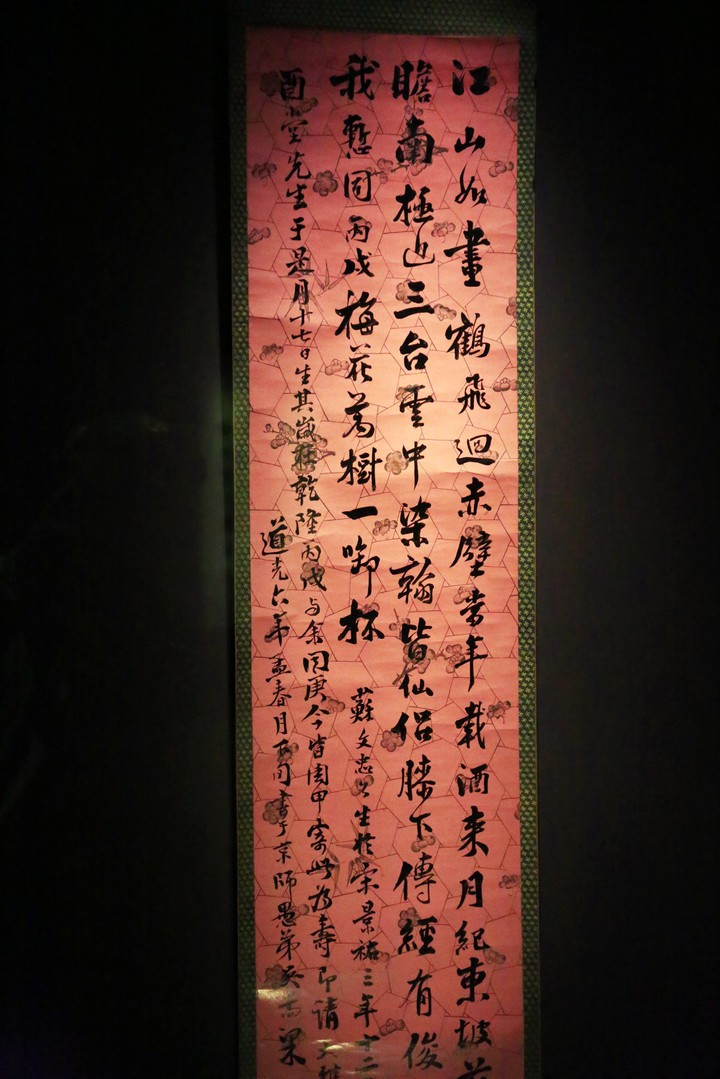 江山如畫鶴飛迴赤壁當年載酒來月紀東坡
瞻南極近三台雲中染翰皆仙侶膝下傳經有俊
我慙同丙戌梅花萬樹一啣杯
蘇文忠公生於宋景祐三年十二
酉堂先生于是月十七日生其歲在乾隆丙戌与余同庚今皆周甲寄此為壽即請
道光六年孟春月下旬書于京師愚弟吳古梁